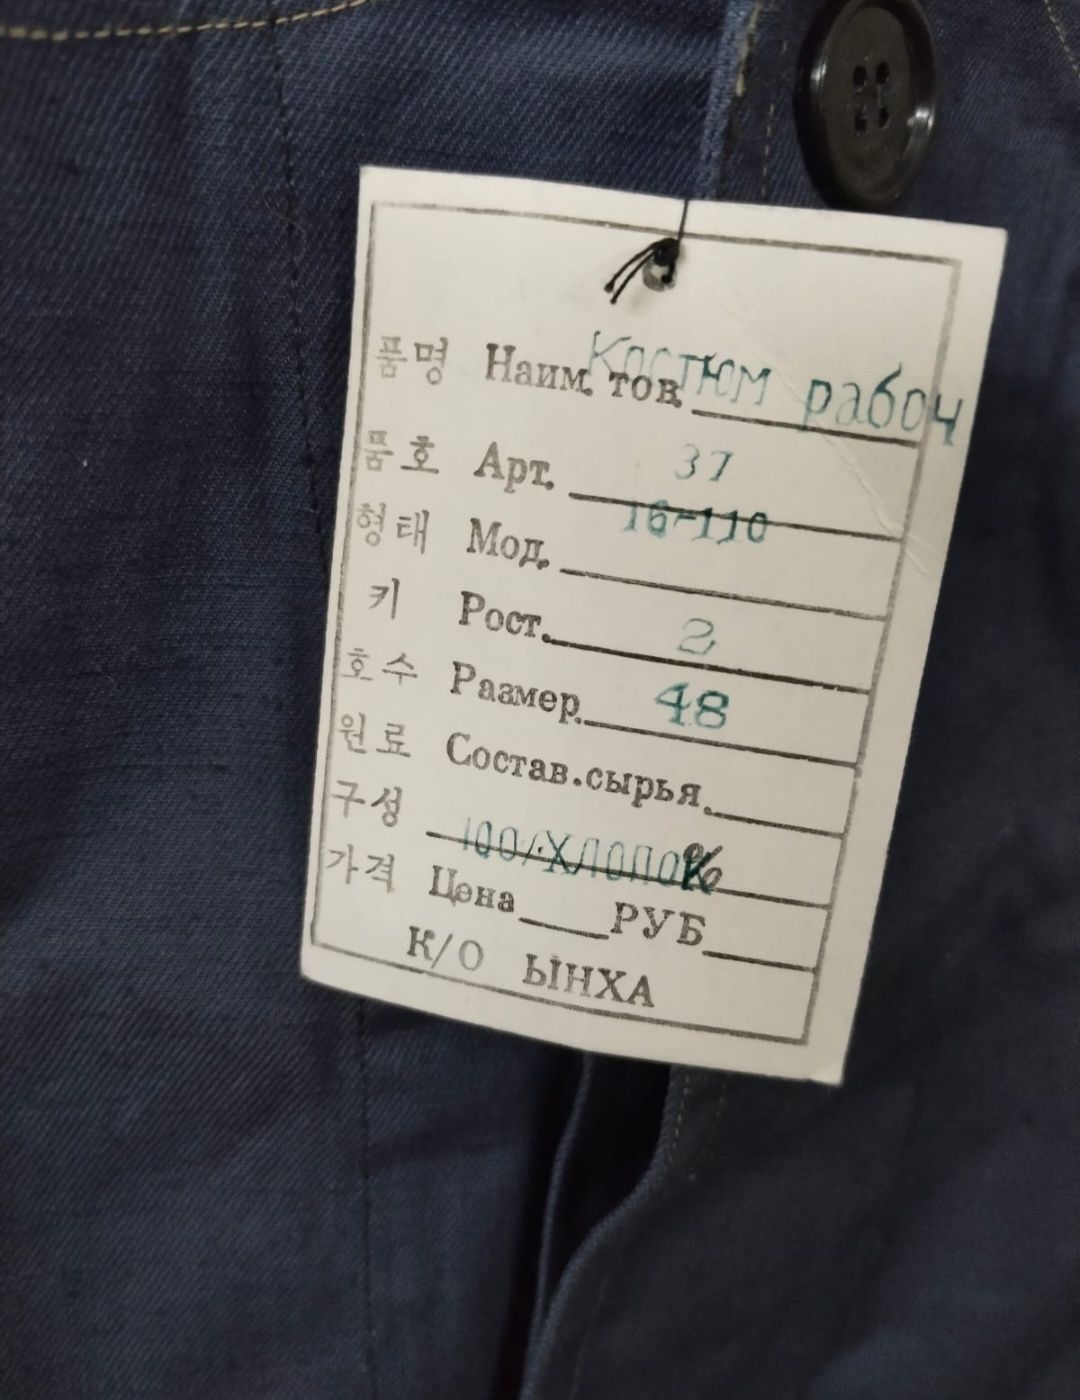 품명 Наим. тов. Костюм рабоч
품호 Арт. 37
16-110
형태 Мод.
키 Рост. 2
호수 Размер. 48
원료 Состав.сырья.
구성 100% хлопок %
가격 Цена РУБ
К/О ЫНХА